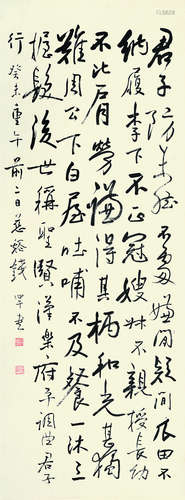 君子防未然不處嫌疑間瓜田不
納履李下不正冠嫂叔不親授長幼
不比肩勞謙得其柄和光甚獨
難周公下白屋吐哺不及餐一沐三
握髮後世稱聖賢漢樂府平調曲君子
行癸未重午前二日慈谿錢罕書